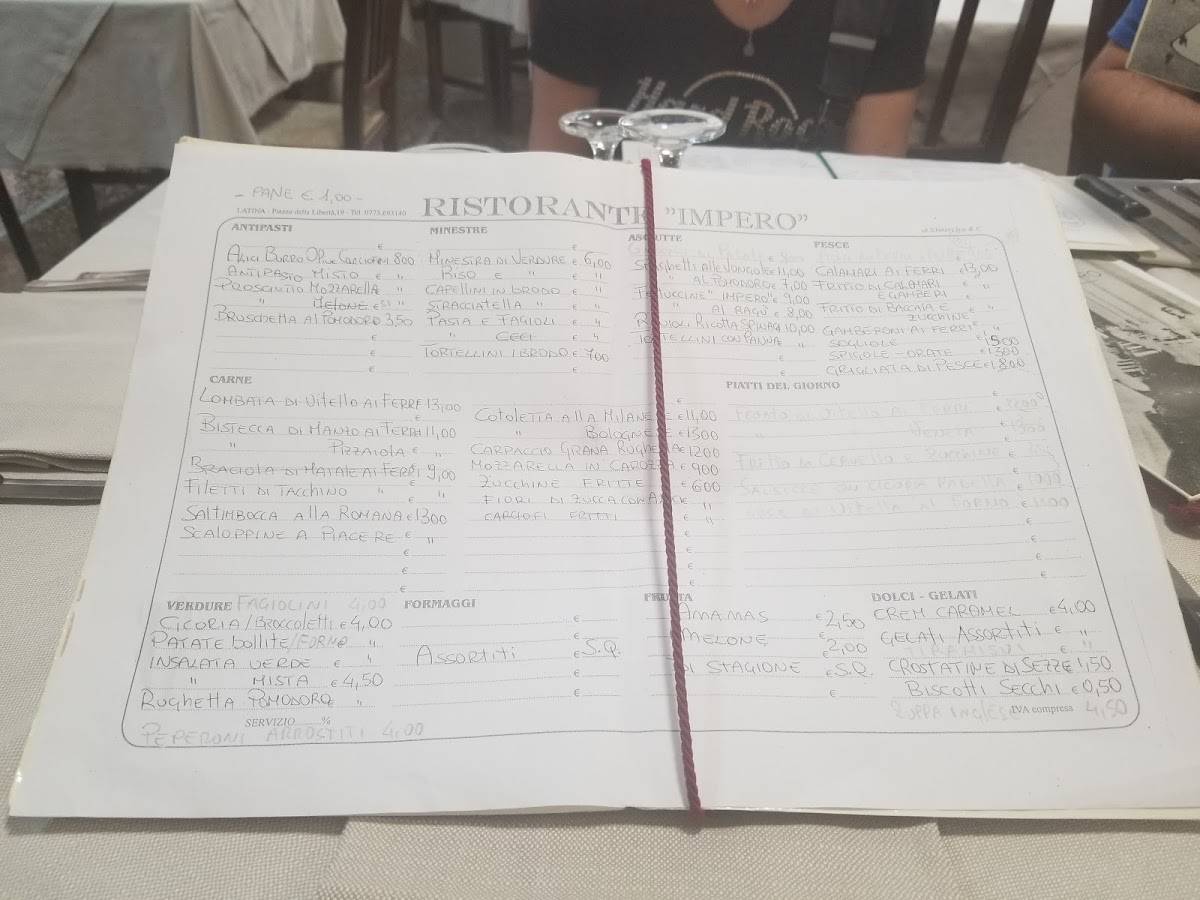 Hard Rock
- PANE € 1,00 -
LATINA - Piazza della Libertà, 19 - Tel. 0773.693140
RISTORANTE "IMPERO"
ANTIPASTI
ALICI BURRO OLIVE CARCIOFI 800
ANTIPASTO MISTO € "
PROSCIUTTO MOZZARELLA "
" MELONE € "
BRUSCHETTA AL POMODORO 3,50
MINESTRE
MINESTRA DI VERDURE € 6,00
RISO € " "
CAPELLINI IN BRODO € "
STRACCIATELLA € "
PASTA E FAGIOLI € "
" CECI € "
TORTELLINI I BRODO € 700
ASCIUTTE
SPAGHETTI alle VONGOLE € 11,00
" AL POMODORO € 7,00
FETTUCCINE "IMPERO" € 9,00
" AL RAGU € 8,00
RAVIOLI RICOTTA SPINACI 10,00
TORTELLINI CON PANNA "
PESCE
CALAMARI AI FERRI € 13,00
FRITTO DI CALAMARI € "
E GAMBERI
FRITTO DI BACCALÀ E € "
ZUCCHINE
GAMBERONI AI FERRI € "
SOGLIOLE € 1500
SPIGOLE - ORATE € 1300
GRIGLIATA DI PESCE € 1800
CARNE
LOMBATA DI VITELLO AI FERRI 13,00
BISTECCA DI MANZO AI FERRI 11,00
" PIZZAIOLA € "
BRACIOLA DI MAIALE AI FERRI 9,00
FILETTI DI TACCHINO " € "
SALTIMBOCCA ALLA ROMANA € 1300
SCALOPPINE A PIACERE € "
COTOLETTA ALLA MILANESE € 11,00
" BOLOGNESE € 1300
CARPACCIO GRANA RUGHETTA € 1200
MOZZARELLA IN CAROZZA € 900
ZUCCHINE FRITTE € 600
FIORI DI ZUCCA CON ALICI € "
CARCIOFI FRITTI € "
PIATTI DEL GIORNO
VITELLO AI FERRI
VENETA
FRITTO DI CERVELLA E ZUCCHINE
VERDURE FAGIOLINI 4,00
CICORIA/BROCCOLETTI € 4,00
PATATE bollite/FORNO "
INSALATA VERDE € "
" MISTA € 4,50
RUGHETTA POMODORO "
SERVIZIO %
PEPERONI ARROSTITI 4,00
FORMAGGI
ASSORTITI € S.Q.
FRUTTA
ANANAS € 2,50
MELONE € 2,00
DI STAGIONE € S.Q.
DOLCI - GELATI
CREM CARAMEL € 4,00
GELATI ASSORTITI € "
TIRAMISU € "
CROSTATINE DI SEZZE 1,50
BISCOTTI SECCHI € 0,50
ZUPPA INGLESE IVA compresa 4,50